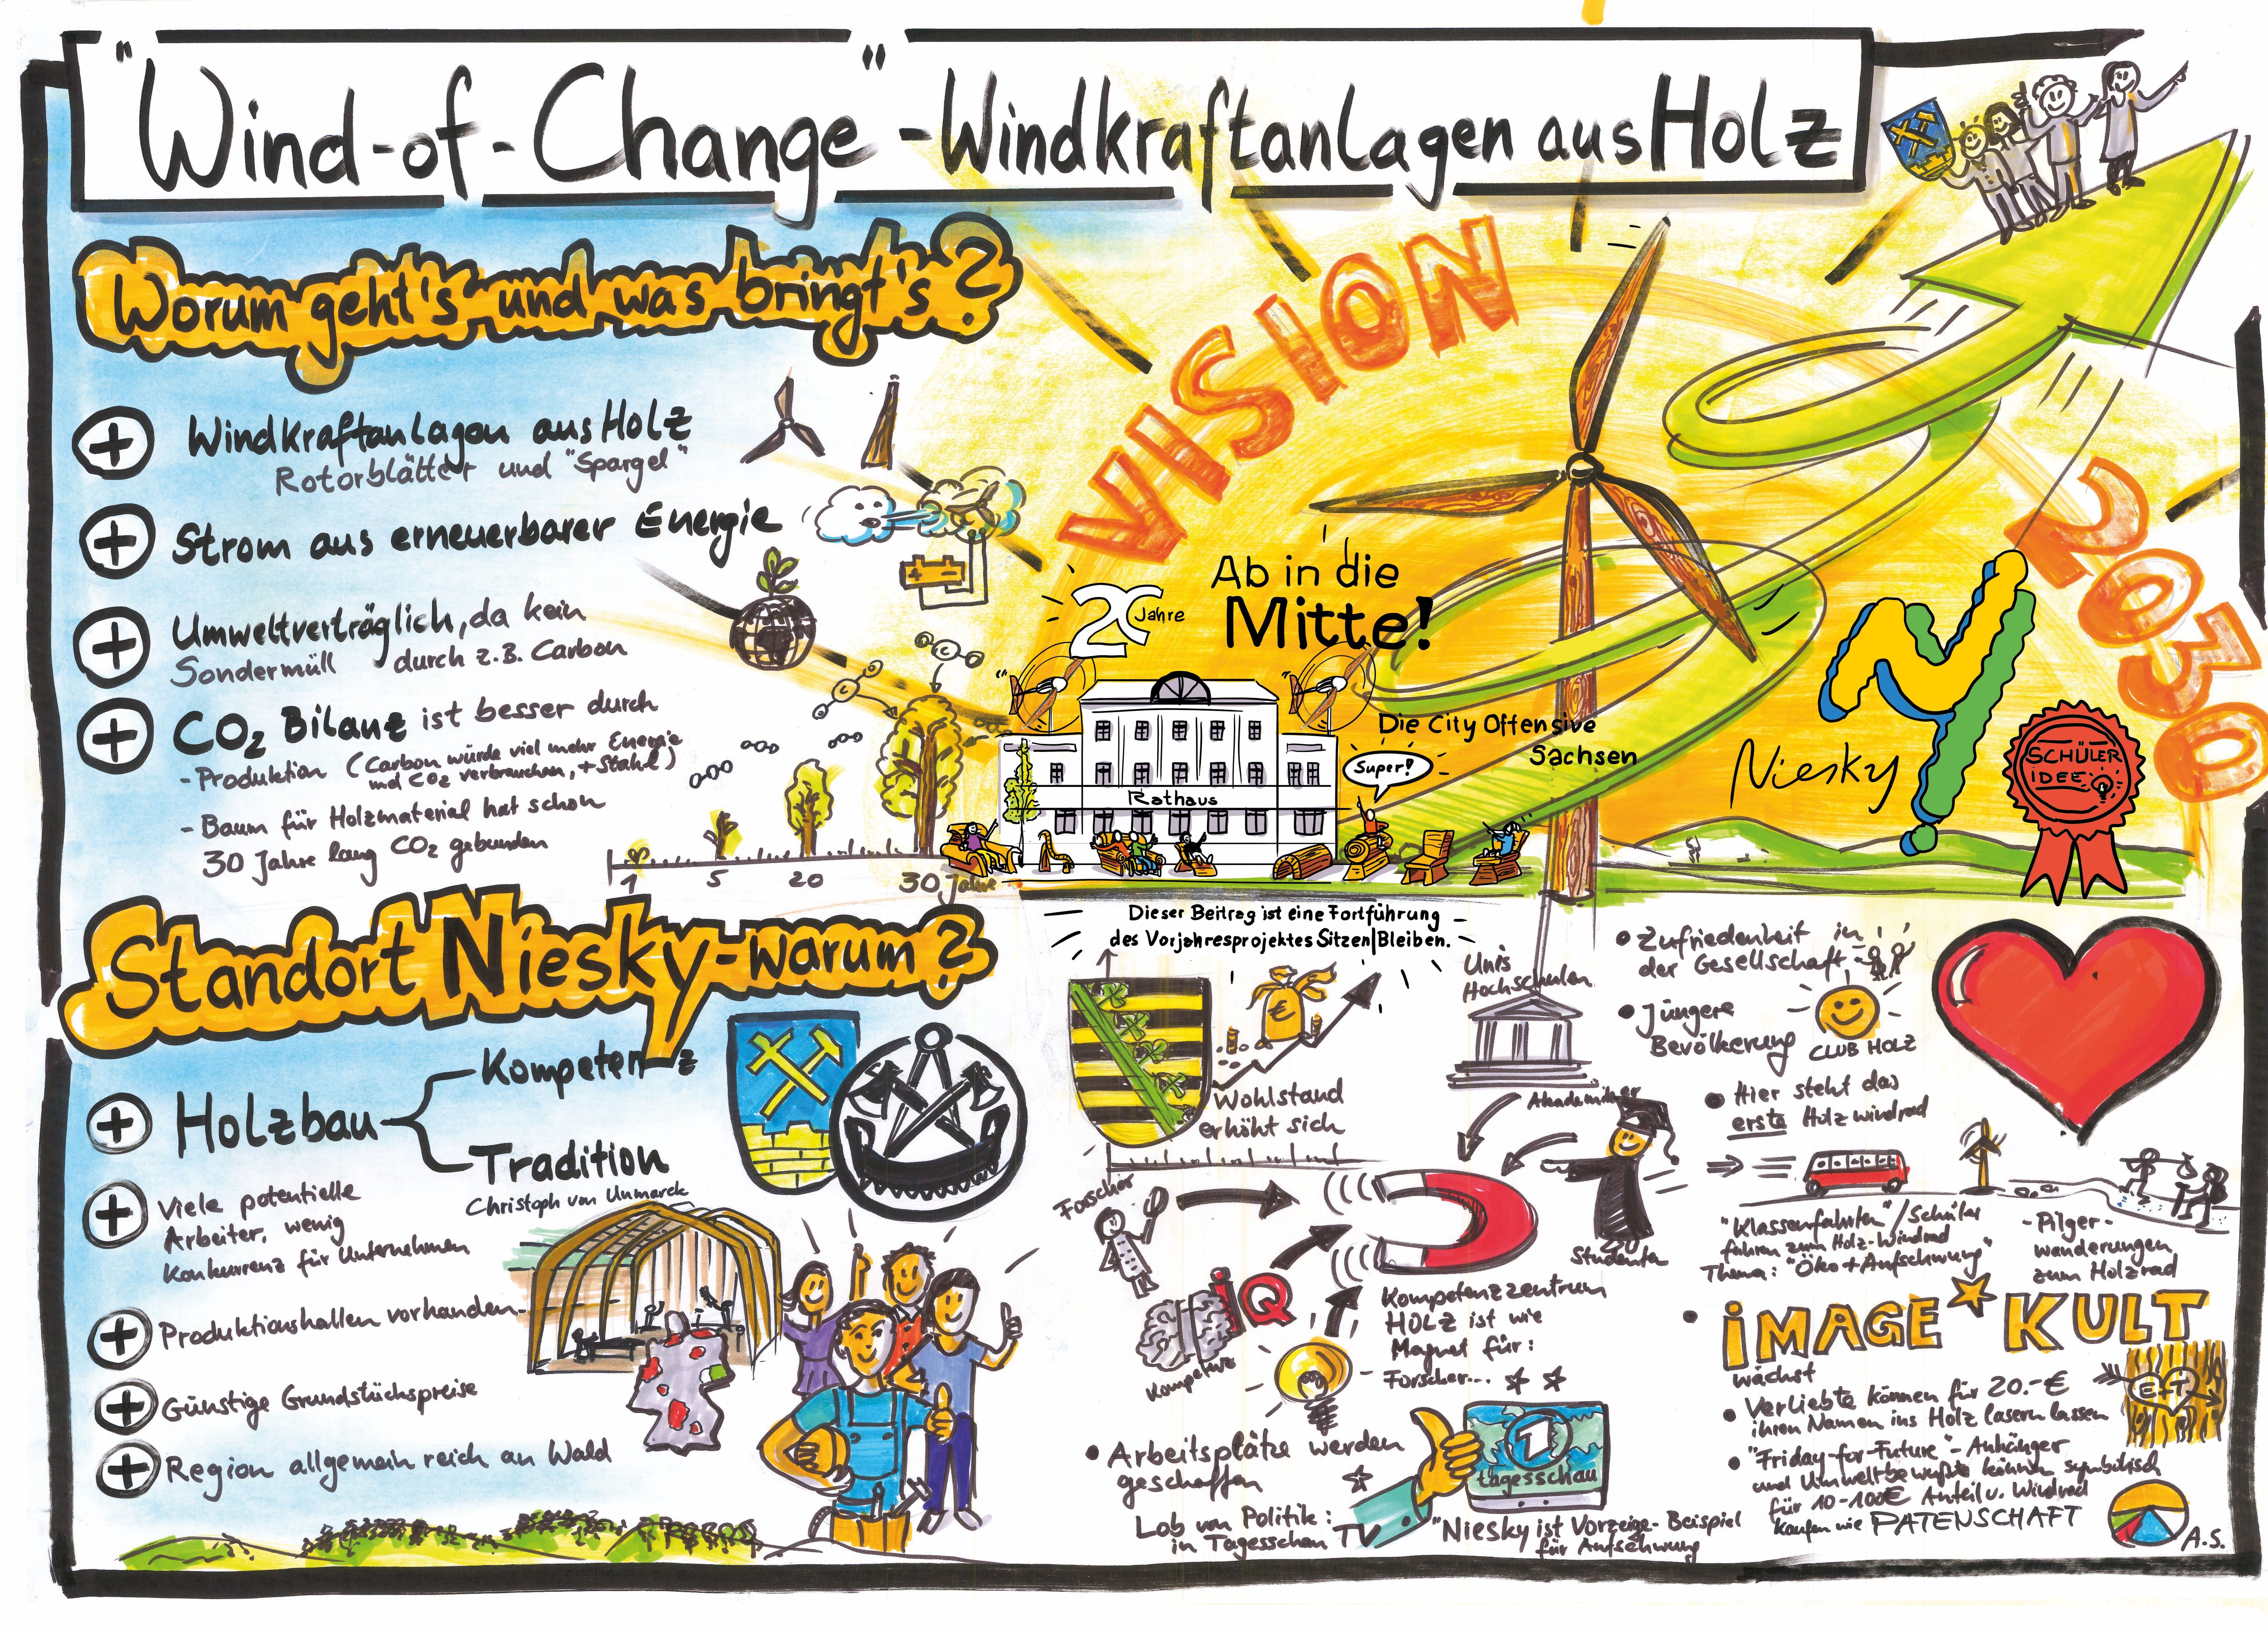 "Wind-of-Change"-Windkraftanlagen aus Holz
Worum geht's und was bringt's?
+ Windkraftanlagen aus Holz
Rotorblätter und "Spargel"
+ Strom aus erneuerbarer Energie
+ Umweltverträglich, da kein
Sondermüll durch z.B. Carbon
+ CO2 Bilanz ist besser durch
- Produktion (Carbon würde viel mehr Energie
und CO2 verbrauchen, + Stahl)
- Baum für Holzmaterial hat schon
30 Jahre lang CO2 gebunden
1 5 20 30 Jahre
VISION
2030
20 Jahre
Ab in die
Mitte!
Die City Offensive
Sachsen
Super!
Rathaus
Niesky
SCHÜLER
IDEE
Dieser Beitrag ist eine Fortführung
des Vorjahresprojektes Sitzen|Bleiben.
Standort Niesky-warum?
+ Holzbau
Kompetenz
Tradition
Christoph von Unmarck
+ Viele potentielle
Arbeiter, wenig
Konkurrenz für Unternehmen
+ Produktionshallen vorhanden
+ Günstige Grundstückspreise
+ Region allgemein reich an Wald
€
Wohlstand
erhöht sich
Unis
Hochschulen
Akademiker
Forscher
Studenten
IQ
Kompetenz
Kompetenzzentrum
HOLZ ist wie
Magnet für:
- Forscher...
• Arbeitsplätze werden
geschaffen
Lob von Politik:
in Tagesschau TV
tagesschau
"Niesky ist Vorzeige-Beispiel
für Aufschwung
• Zufriedenheit in
der Gesellschaft
• Jüngere
Bevölkerung
CLUB HOLZ
• Hier steht das
erste Holzwindrad
"Klassenfahrten"/Schüler
fahren zum Holz-Windrad
Thema: "Öko+Aufschwung"
-Pilger-
wanderungen
zum Holzrad
• IMAGE KULT
wächst
• Verliebte können für 20.-€
ihren Namen ins Holz lasern lassen
E+T
• "Friday-for-Future"-Anhänger
und Umweltbewußte können symbolisch
für 10-100€ Anteil v. Windrad
kaufen wie PATENSCHAFT
A.S.